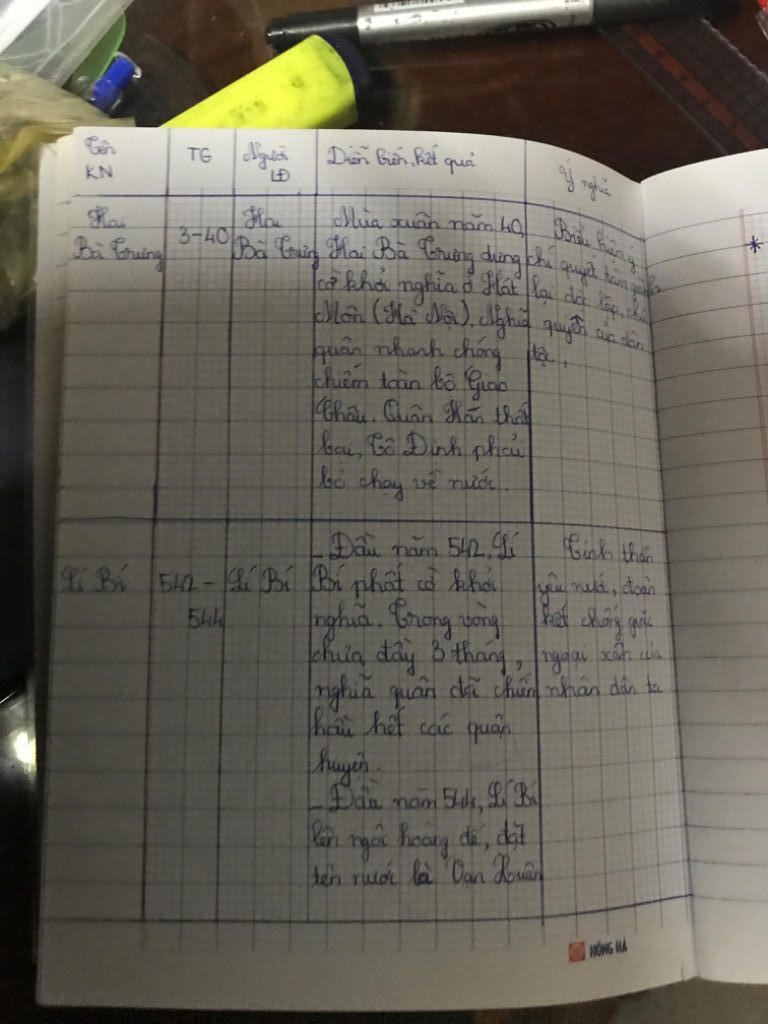 Tên
KN
TG
Người
LĐ
Diễn biến, kết quả
Ý nghĩa
Hai
Bà Trưng
3-40
Hai
Bà Trưng
Mùa xuân năm 40,
Hai Bà Trưng dựng
cờ khởi nghĩa ở Hát
Môn (Hà Nội). Nghĩa
quân nhanh chóng
chiếm toàn bộ Giao
Châu. Quân Hán thất
bại, Tô Định phải
bỏ chạy về nước.
Biểu hiện ý
chí quyết tâm giành
lại độc lập, chủ
quyền của dân
tộc.
Lí Bí
542 -
544
Lí Bí
- Đầu năm 542, Lí
Bí phất cờ khởi
nghĩa. Trong vòng
chưa đầy 3 tháng,
nghĩa quân đã chiếm
hầu hết các quận
huyện.
- Đầu năm 544, Lí Bí
lên ngôi hoàng đế, đặt
tên nước là Vạn Xuân
Tinh thần
yêu nước, đoàn
kết chống giặc
ngoại xâm của
nhân dân ta
HỒNG HÀ